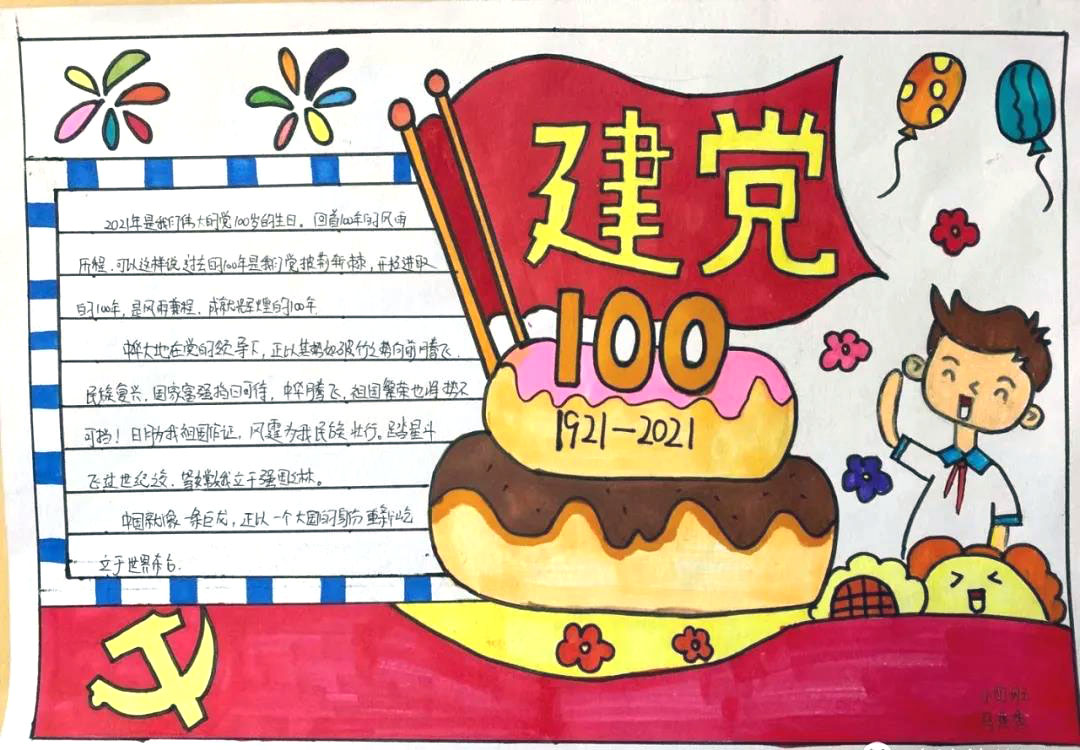 建党
100
1921-2021
2021年是我们伟大的党100岁的生日。回首100年的风雨
历程，可以这样说过去的100年是我们党披荆斩棘，开拓进取
的100年，是风雨兼程、成就辉煌的100年.
中华大地在党的领导下，正以其势如破竹之势向前腾飞.
民族复兴，国家富强指日可待，中华腾飞，祖国繁荣也将势不
可挡！日月为我祖国作证，风霆为我民族壮行。踏星斗
飞过世纪之
立于强国之林。
中国就像一条巨龙，正以一个大国的身份重新屹
立于世界东方.